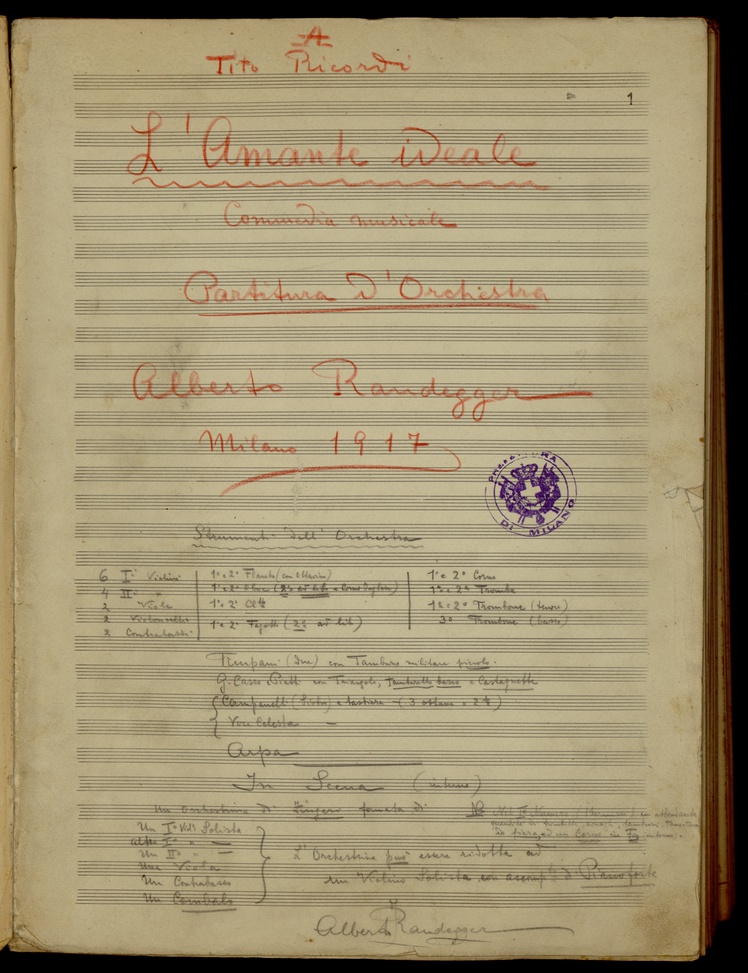 A
Tito Ricordi
1
L'Amante ideale
Commedia musicale
Partitura D'Orchestra
Alberto Randegger
Milano 1917
PREFETTURA
DI MILANO
Strumenti dell'Orchestra
6 Iⁱ Violini
4 IIⁱ "
2 Viole
2 Violoncelli
2 Contrabassi
1º e 2º Flauto (con Ottavino)
1º e 2º Oboe (2º ad lib e Corno Inglese)
1º e 2º Cltti
1º e 2º Fagotti (2º ad lib)
1º e 2º Corno
1º e 2º Tromba
1º e 2º Trombone (tenori)
3º Trombone (basso)
Timpani (due) con Tamburo militare piccolo.
G. Cassa e Piatti con Triangolo, Tamburello basso e Castagnette
Campanelli (Sistro) a tastiera - (3 ottave e 2ª)
Voce Celesta -
Arpa
In Scena (interno)
Un Orchestrina di Zingari formata di
Un Iº Viol Solista
altro Iº " -
Un IIº " -
Una Viola
Un Contrabasso
Un Cembalo
L'Orchestrina può essere ridotta ad
un Violino Solista con accompto di Pianoforte
NB
Alberto Randegger